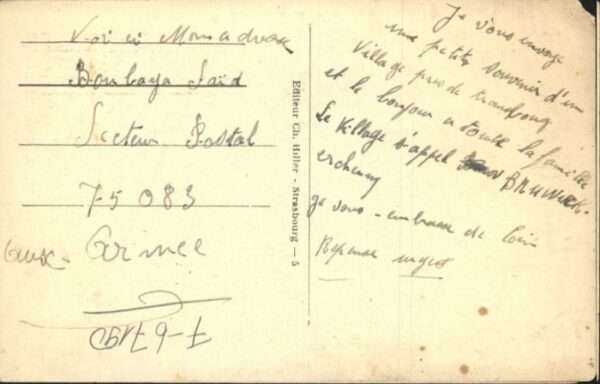 Voici Mon adresse
Boubaya Saïd
Secteur Postal
75083
aux Armée
Editeur Ch. Hiller - Strasbourg — 5
Je vous envoye
une petite souvenir d'un
Village près de Strasbourg
et le bonjour a toute la famille
Le village s'appel
je vous - embrasse de loin
Reponse urget